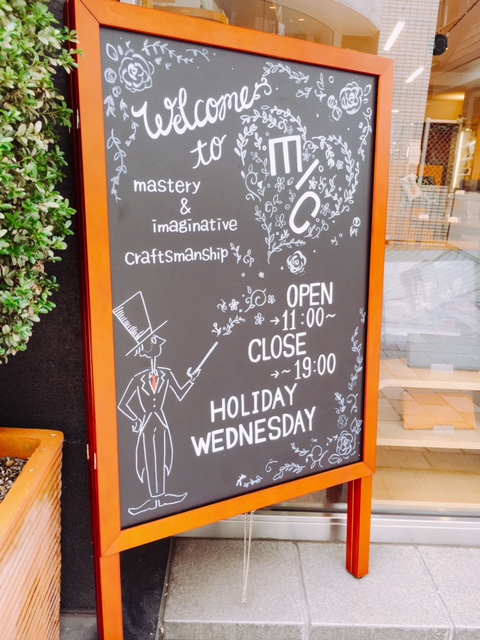 Welcome
to
mastery
&
imaginative
craftsmanship
EMIC
OPEN
→11:00~
CLOSE
→~19:00
HOLIDAY
WEDNESDAY